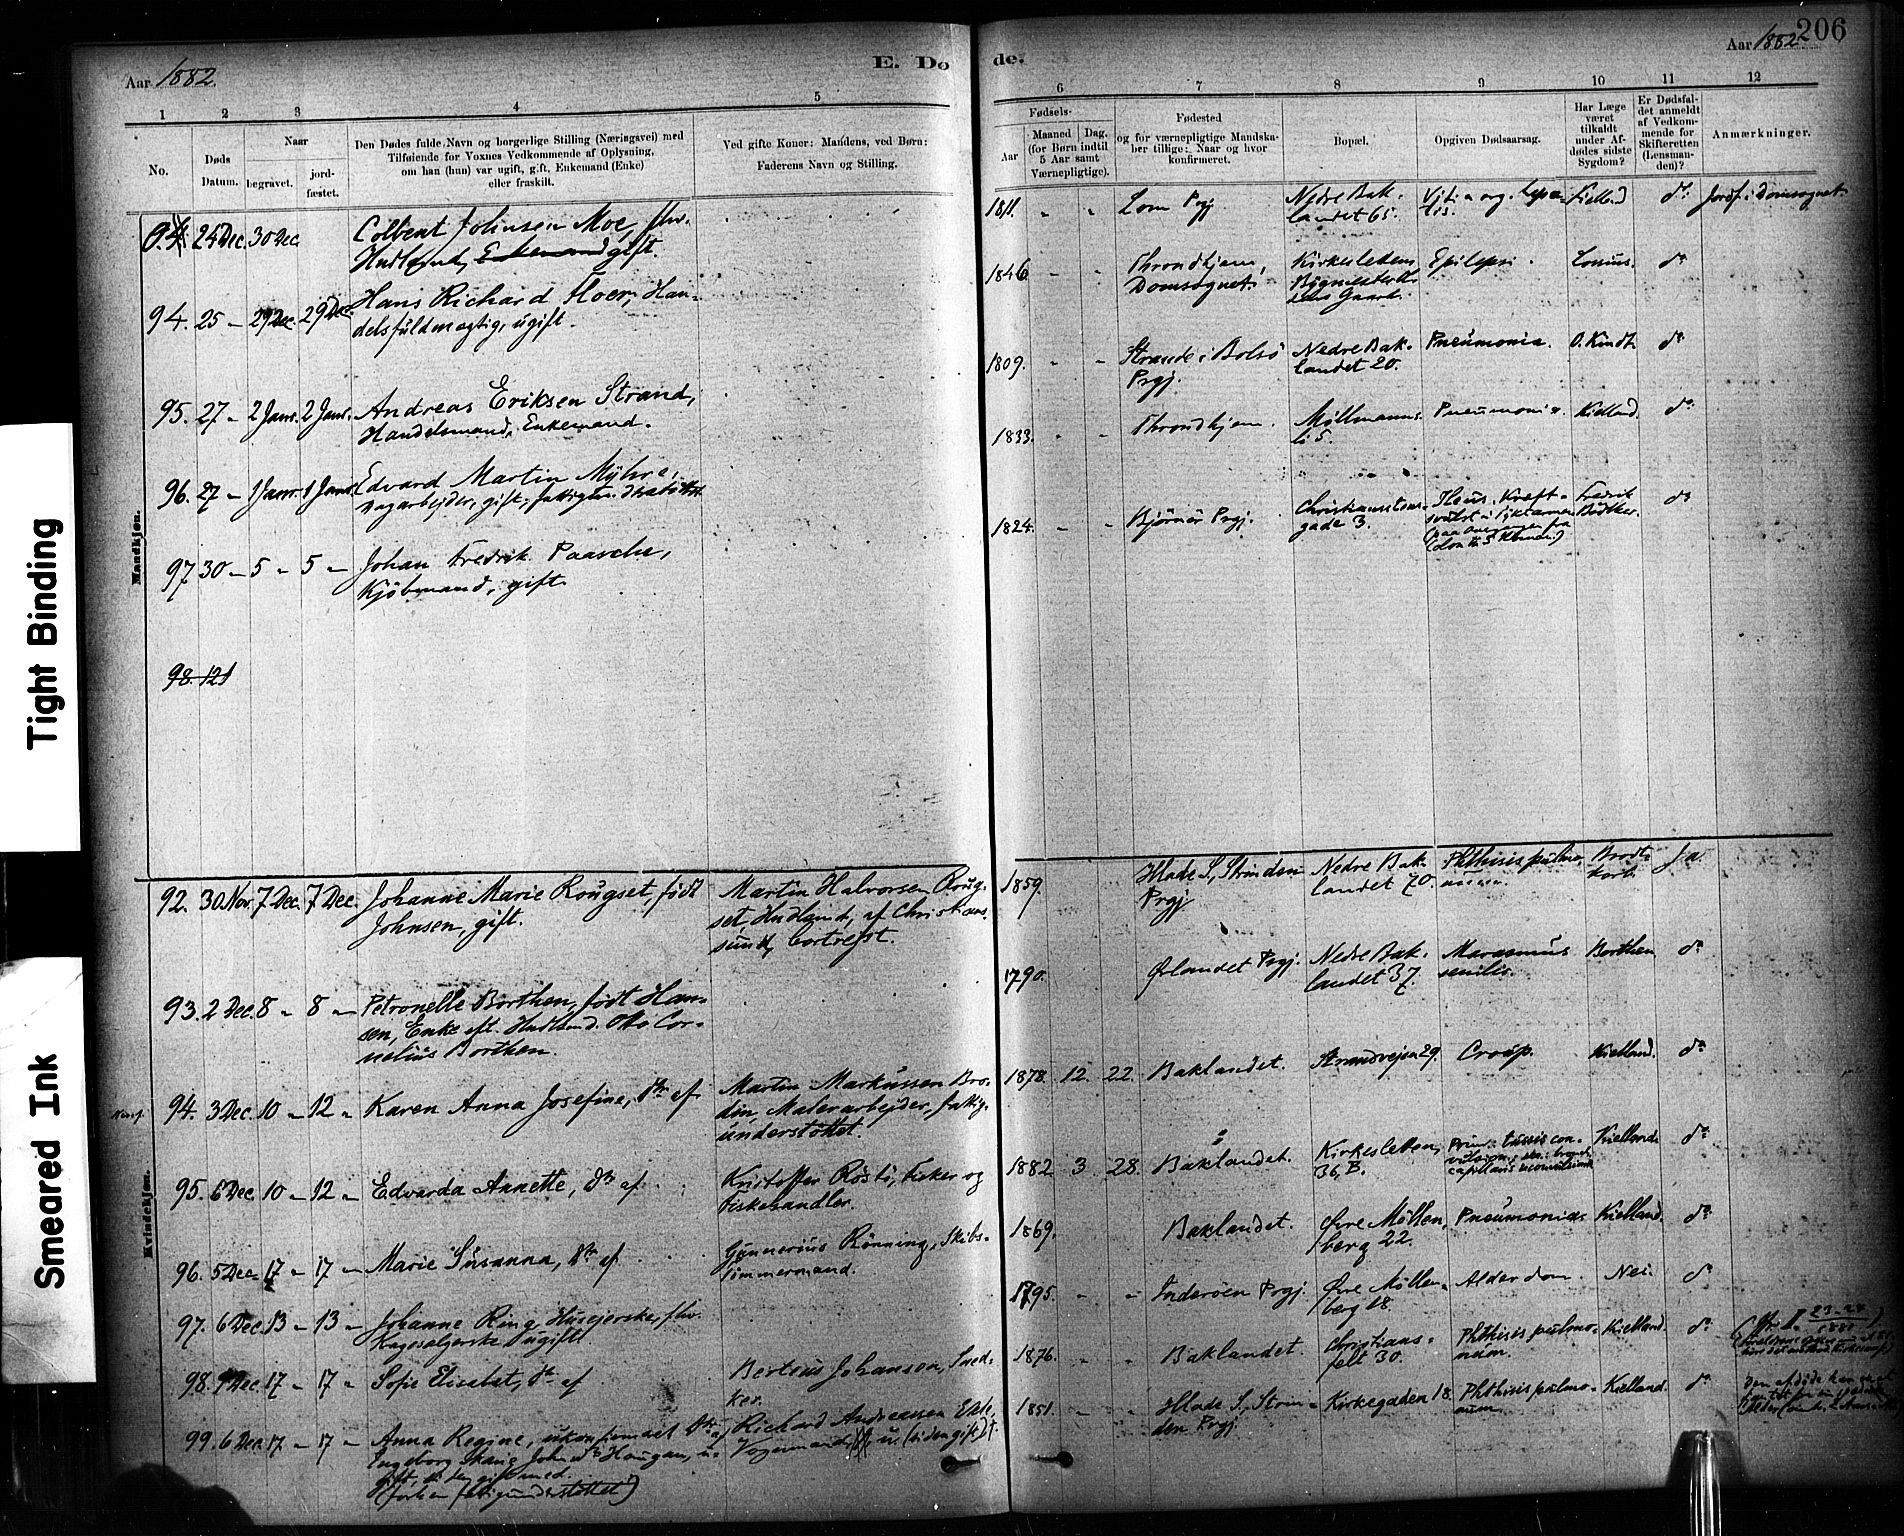 Aar 1882
E. Dø
de.
Aar 1882
206
1
2
3
4
5
6
7
8
9
10
11
12
No.
Døds Datum.
Naar
begravet.
jord-fæstet.
Den Dødes fulde Navn og borgerlige Stilling (Næringsvei) med
Tilføiende for Voxnes Vedkommende af Oplysning,
om han (hun) var ugift, gift, Enkemand (Enke)
eller fraskilt.
Ved gifte Koner: Mandens, ved Børn:
Faderens Navn og Stilling.
Fødsels-
Aar
Maaned (for Børn indtil 5 Aar samt Værnepligtige).
Dag.
Fødested
og for værnepligtige Mandska-
ber tillige: Naar og hvor
konfirmeret.
Bopæl.
Opgiven Dødsaarsag.
Har Læge været tilkaldt under Af-dødes sidste Sygdom?
Er Dødsfal-det anmeldt af Vedkom-mende for Skifteretten (Lensman-den)?
Anmærkninger.
Mandkjøn.
24 Dec. 30 Dec.
Johnsen Moe, fhv.
Enkemand gift.
1811. Lom Prgj.
Nedre Bak-
landet 65.
Kielland
do
Jordf. i Domsognet.
94. 25 - 29 Dec. 29 Dec.
Hans Richard Floer, Han-
delsfuldmægtig, ugift.
1846 - -
Throndhjem,
Domsognet.
Kirkesletten
Epilepsi.
do
95. 27 - 2 Janr. 2 Janr.
Andreas Eriksen Strand,
Handelsmand, Enkemand.
1809. - -
Strande i Bolsø
Prgj.
Nedre Bak-
landet 20.
Pneumonia.
O. Kindt.
do
96. 27 - 1 Janr. 1 Janr.
Edvard Martin Myhre,
Dagarbejder, gift,
1833. - -
Throndhjem.
Møllmanns-
Pneumonia.
Kielland.
do
97. 30 - 5 - 5 -
Johan Fredrik Paasche,
Kjøbmand, gift.
1824. - -
Bjørnør Prgj.
Christianstens-
gade 3.
Ileus. Kræft-
Fredrik
Bödtker.
do
98. 121
Kvindekjøn.
92. 30 Nov. 7 Dec. 7 Dec.
Johanne Marie Rougset, født
Johnsen, gift.
Martin Halvorsen Roug-
set, Hudlsmd, af Christians-
sund, bortrejst.
1859.
Hlade S., Strinden
Prgj.
Nedre Bak-
landet 70.
Phthisis pulmo-
num.
Ja.
93. 2 Dec. 8 - 8 -
Petronelle Borthen, født Han-
sen, Enke eft. Hudlsmd. Otto Cor-
nelius Borthen.
1790.
Ørlandet Prgj.
Nedre Bak-
landet 37.
Marasmus
senilis.
Borthen
do
94. 3 Dec. 10 - 12 -
Karen Anna Josefine, Dtr af
Martin Markussen Bro-
din, Malerarbejder, fattig-
understøttet.
1878. 12. 22.
Baklandet.
Strandvejen 29.
Croup.
Kielland.
do
95. 6 Dec. 10 - 12 -
Edvarda Annette, Dtr af
Kristoffer Røstø, Fisker og
Fiskehandler.
1882 3. 28.
Baklandet.
Kirkesletten,
36, B.
Kielland.
do
96. 5 Dec. 17 - 17 -
Marie Susanna, Dtr af
Gunnerius Rønning, Skibs-
tømmermand.
1869.
Baklandet.
Øvre Møllen-
berg 22.
Pneumonia.
Kielland.
do
97. 6 Dec. 13 - 13 -
Johanne Ring, Husejerske, fhv.
ugift
1795. - -
Inderøen Prgj.
Øvre Møllen-
berg 18.
Alderdom.
Nei.
do
98. 9 Dec. 17 - 17 -
Sofie Elisabet, Dtr af
Berteus Johanson, Sned-
ker.
1876. - -
Baklandet.
Christians-
felt 30.
Phthisis pulmo-
num.
Kielland.
do
99. 6 Dec. 17 - 17 -
Anna Regine, ukonfirmeret Dtr af
Richard Andreassen
1851. - -
Hlade S., Strin-
den Prgj.
Kirkegaden 18.
Phthisis pulmo-
num.
Kielland.
do
Tight Binding
Smeared Ink